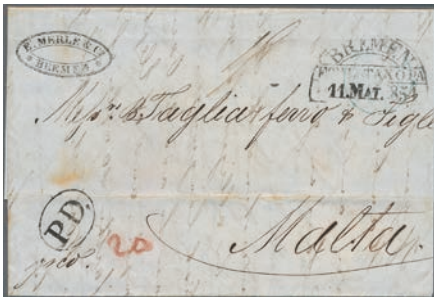 E. MERLE & Co
BREMEN
BREMEN
11. MAI. 854
Messrs B. Tagliaferro & Figli
P.D.
20
Malta.